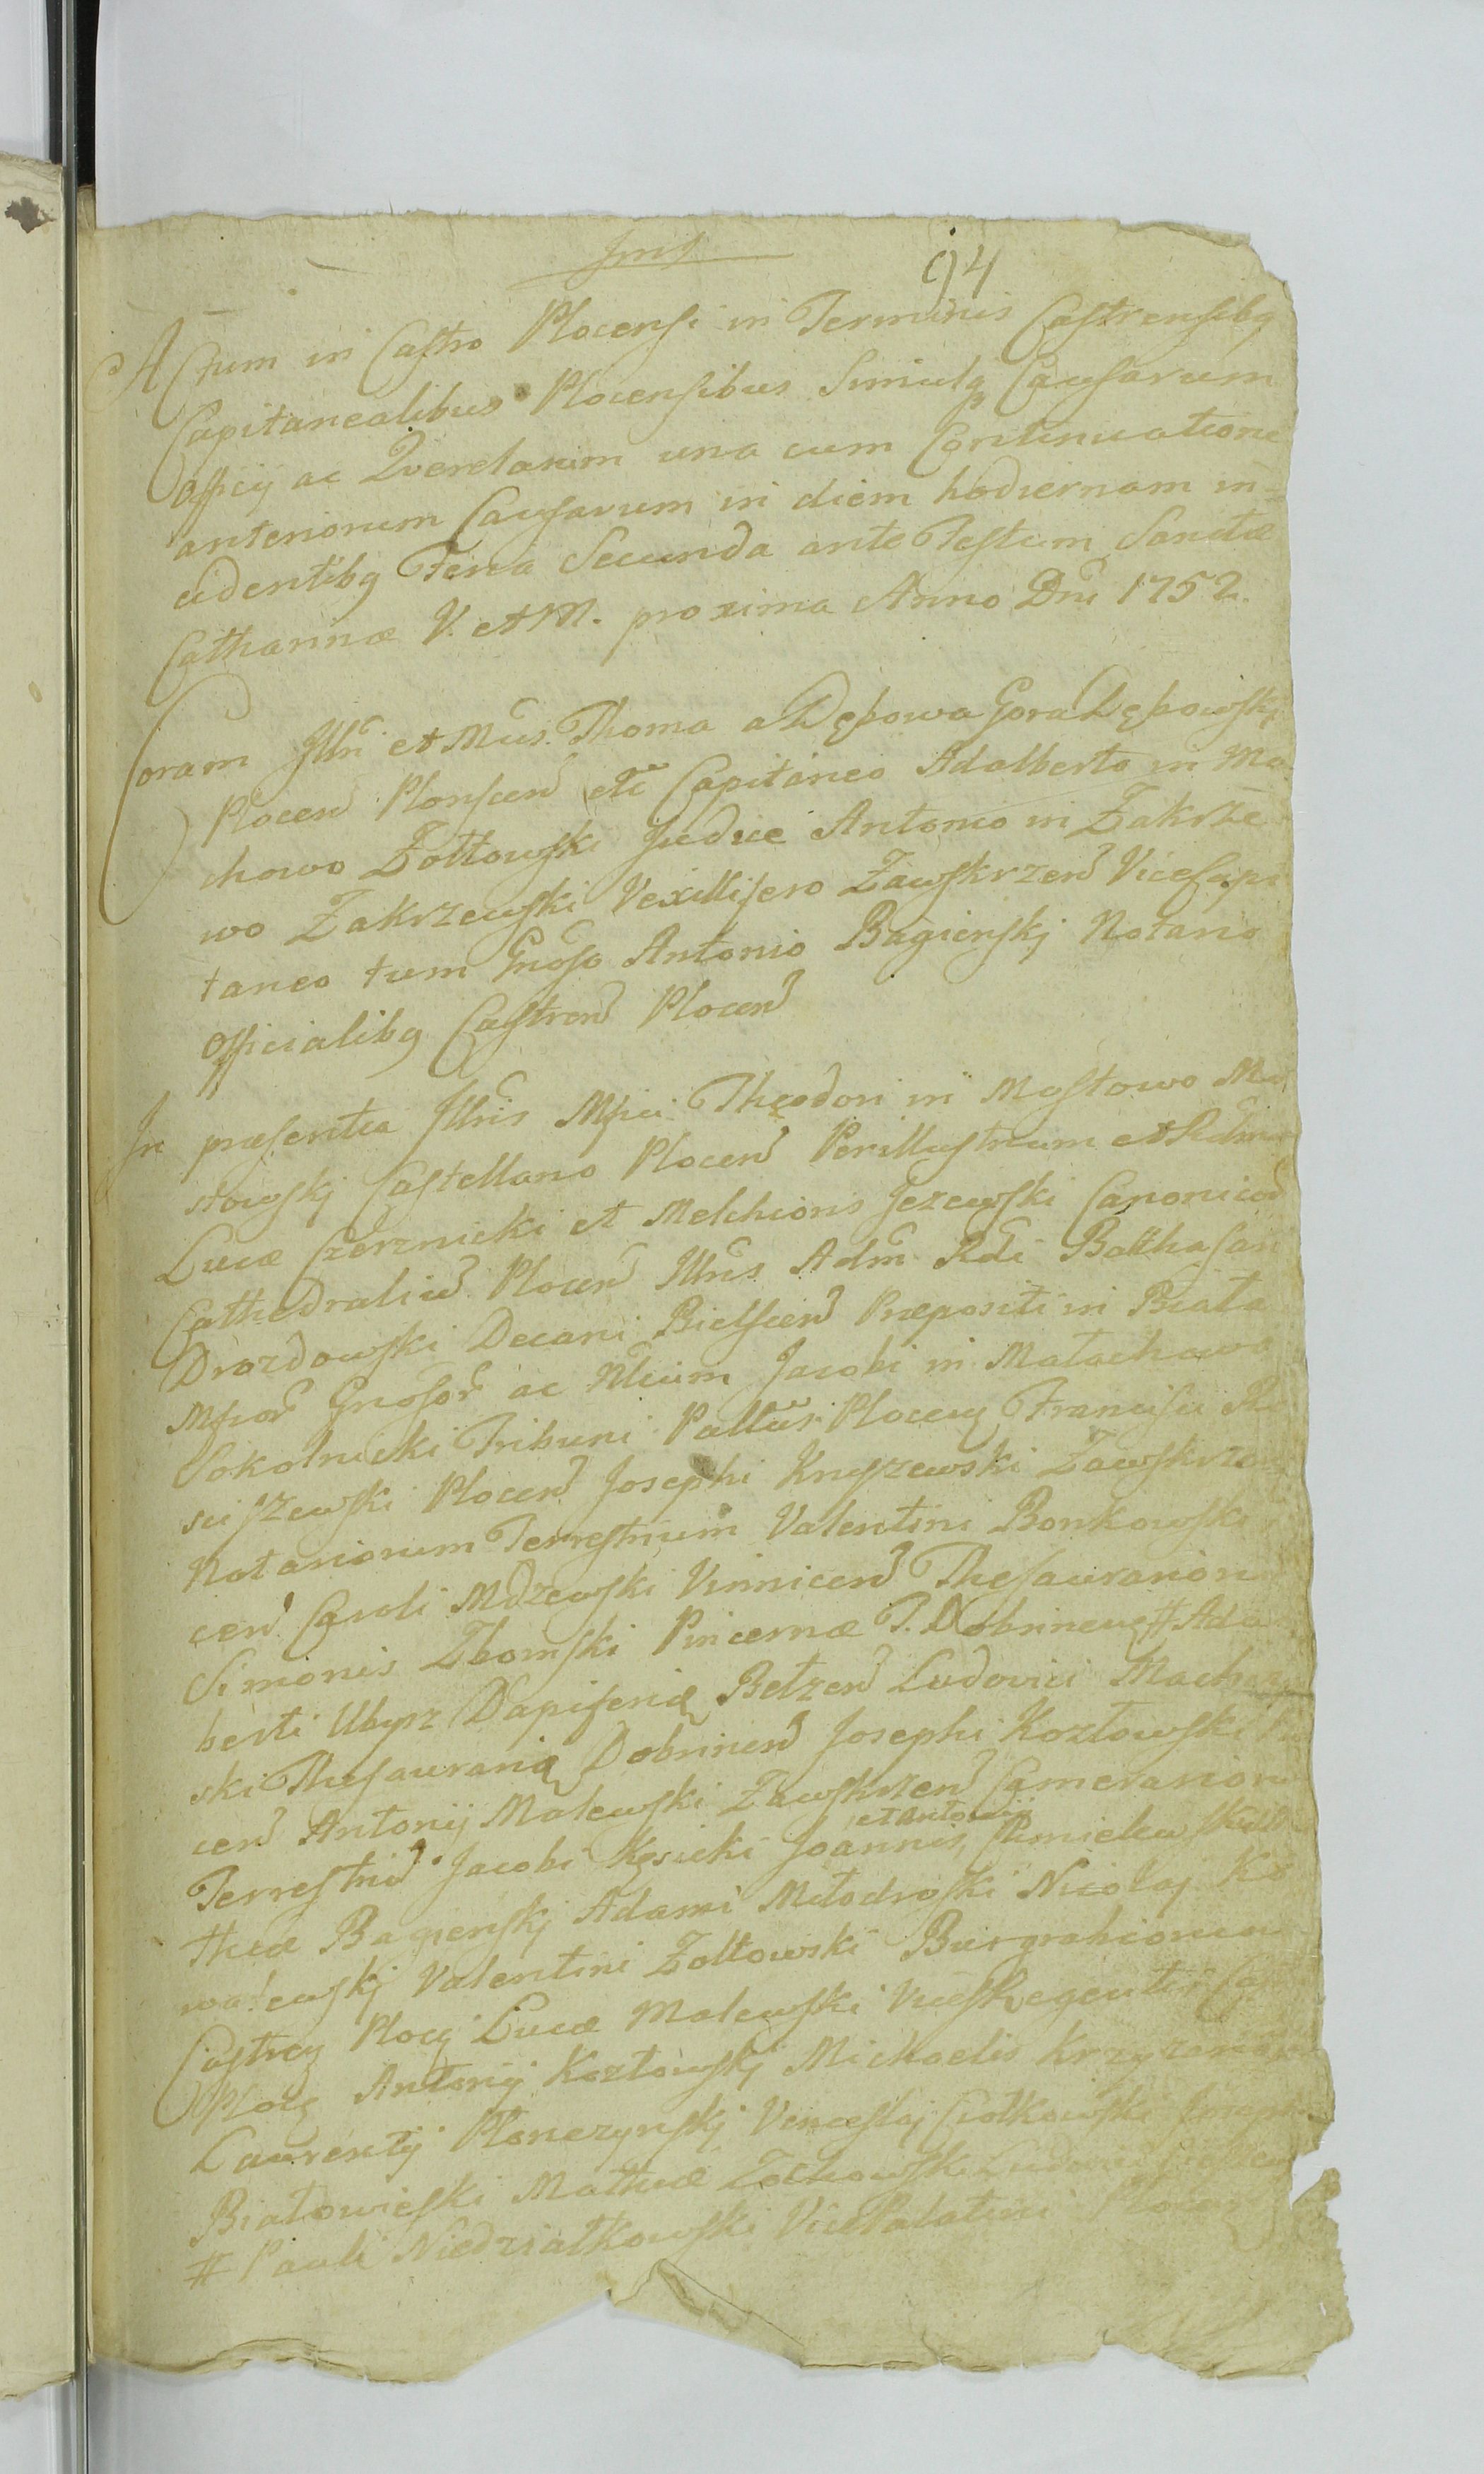 94
Actum in Castro Plocensi in Terminis Castrensibq
Capitanealibus Plocensibus Simulq Causarum
Officij ac Querelarum una cum Continuatione
anteriorum Causarum in diem hodiernam in-
cidentibq Feria Secunda ante Festum Sanctæ
Catharinæ V. et M. proxima Anno Dni 1752.
Coram Illri et Mcus. Thoma a Dębowa Gora Dębowskj
Plocen Plonscen etc Capitaneo Adalberto in Ma
chowo Zołtowski Judice Antonio in Zakrze
wo Zakrzewski Vexillifero Zawskrzen ViceCapi
taneo tum Gnoso Antonio Bagienskj Notario
Officialibq Castren Plocen
In præsentia Illris Mfici Theodori in Mostowo Mo
stowskj Castellano Plocen Perillustrium et
Lucæ Czernicki et Melchioris Jezewski Canonicor
Cathedraliu Plocen Illris Adm Rdi Balthasari
Drozdowski Decani Bielscen Præpositi in Biała
Mficor Gnosor ac Nlium Jacobi in Małachowo
Sokolnicki Tribuni Pallus Plocen Francisci Ro
sciszewski Plocen Josephi Knyszewski Zawskrzen
Notariorum Terrestrium Valentini Bonkowski
cen Caroli Mdzewski Vinnicen Thesaurarior
Simonis Zbomski Pincernæ T. Dobrinen # Adal
berti Ubysz Dapiferiq Bełzen Ludovici
ski Thesaurariq Dobrinen Josephi Kozłowski
cen Antonij Malewski Zawskrzen Camerarior
et Antonij
Terrestriu Jacobi Kęsicki Joannis, Chmielewski
thæi Bagienskj Adami Młodroski Nicolaj Ko
walewskj Valentini Zołtowski Burgrabiorum
Castren Plocen Lucæ Malewski ViceRegentis
Plocen Antonij Kozłowskj Michaelis
Laurentij Płonczynskj Venceslaj Ciołkowski
Białowieski Mathiæ Zochowski Ludovici
# Pauli Niedziałkowski VicePalatini